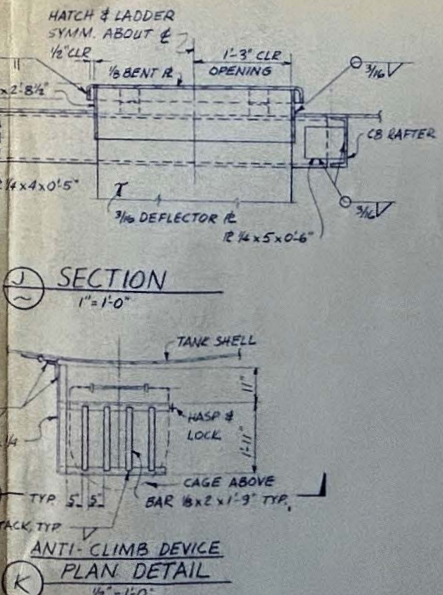 HATCH & LADDER
SYMM. ABOUT ℄
1/2" CLR
1'-3" CLR
OPENING
1/8 BENT ℄
3/16
x 2'-8½"
C8 RAFTER
1/4x4x0'-5"
3/16 DEFLECTOR ℄
3/16
℄ 1/4 x 5 x 0'-6"
J
SECTION
1"=1'-0"
TANK SHELL
11"
HASP &
LOCK
1'-11"
CAGE ABOVE
TYP. 5" 5"
BAR 1/8 x 2 x 1'-9" TYP.
TACK, TYP
ANTI-CLIMB DEVICE
K
PLAN DETAIL